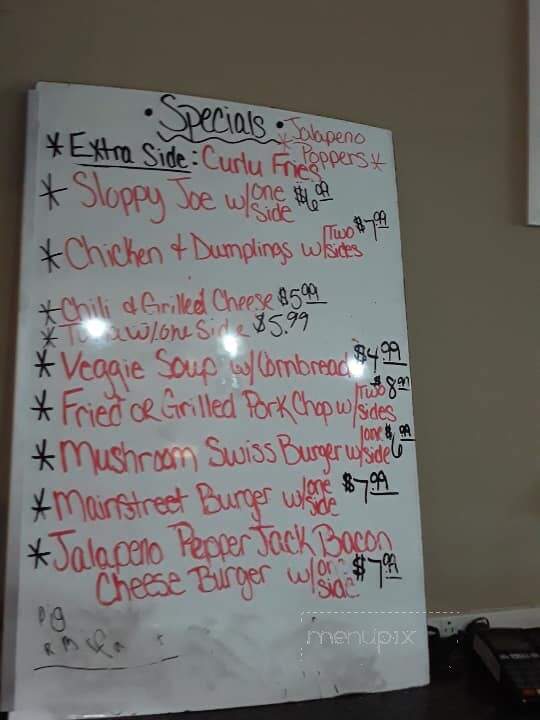 • Specials •
*Jalapeno
Poppers*
* Extra Side: Curlu Fries
* Sloppy Joe w/one side $6.99
* Chicken & Dumplings w/Two sides $7.99
* Chili & Grilled Cheese $5.99
* w/one Side $5.99
* Veggie Soup w/Cornbread $4.99
* Fried or Grilled Pork Chop w/Two sides $8.99
* Mushroom Swiss Burger w/one side $6.99
* Mainstreet Burger w/one side $7.99
* Jalapeno Pepper Jack Bacon
Cheese Burger w/one side $7.99
menupix